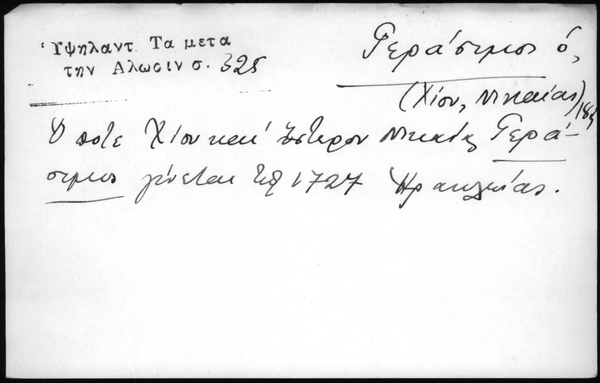 Ὑψηλαντ. Τα μετα
την Αλωσιν σ. 325
Γεράσιμος ὁ,
(Χίου, Νικαίας)
Ὁ ποτε Χίου καί ὕστερον Νικαίας Γερά-
σιμος γίνεται τῷ 1727 Ηρακλείας.